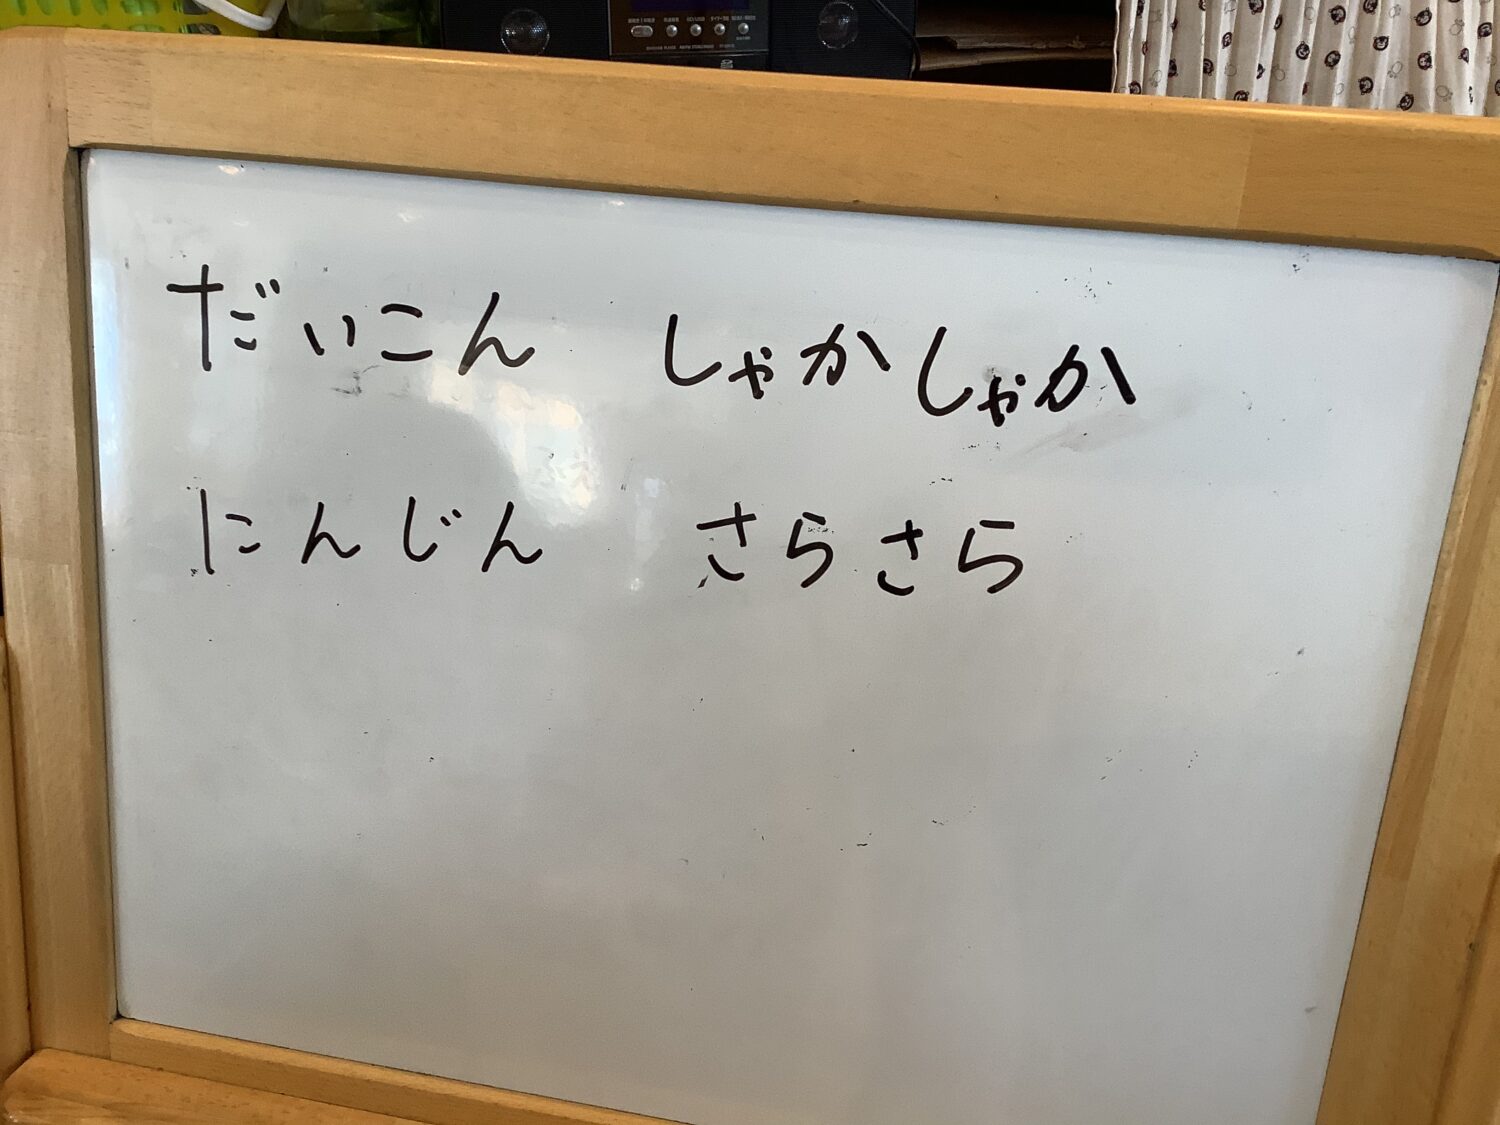 だいこん しゃかしゃか
にんじん さらさら